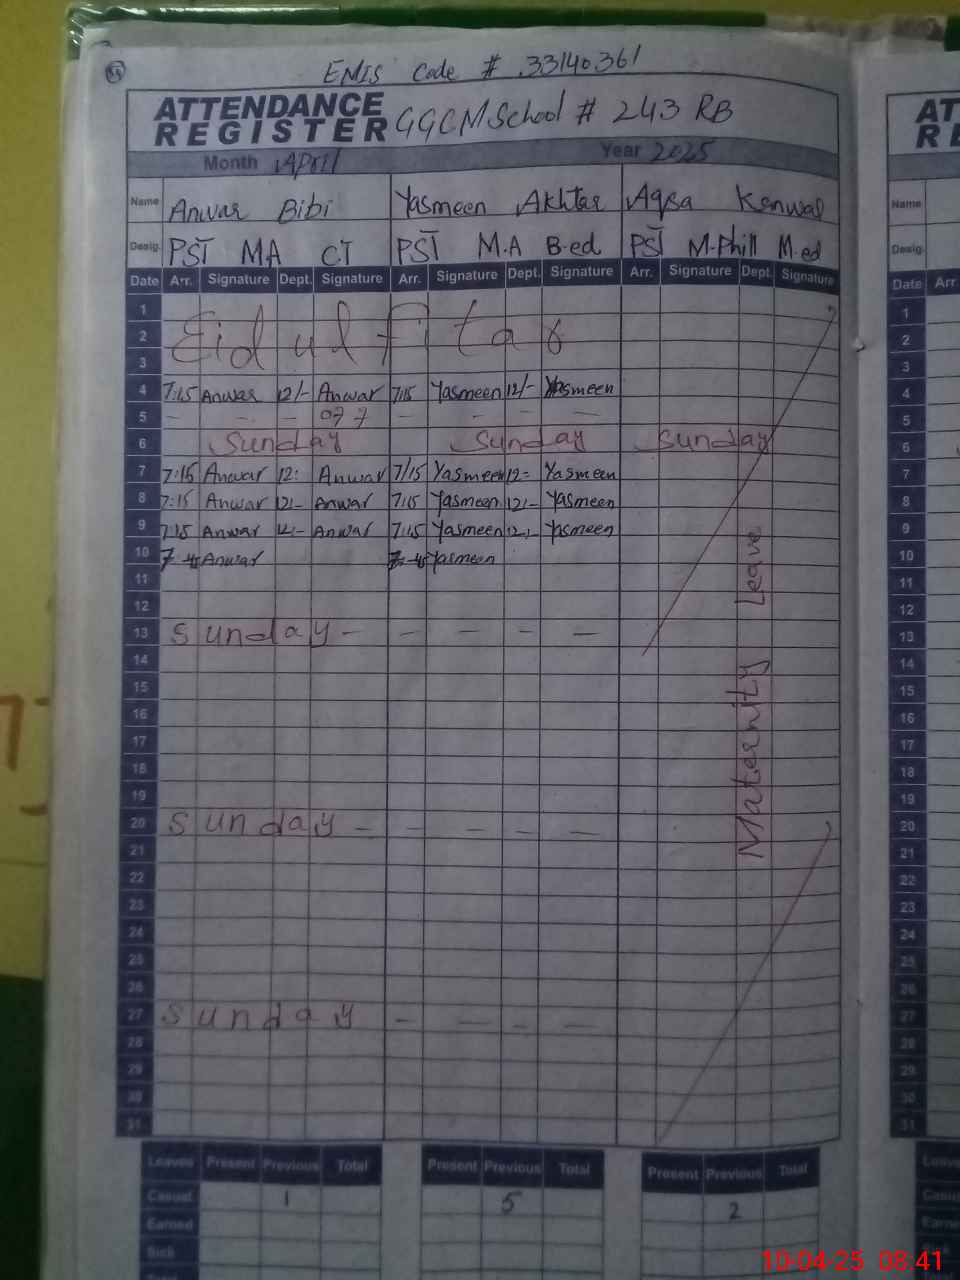 EMIS Code # 33140361
ATTENDANCE REGISTER GGCMSchool # 243 RB
Month April Year 2025
Name Anwar Bibi Yasmeen Akhtar Aqsa Kanwal
Desig. PST MA CT PST M.A B.ed PST M.Phill M.ed
Date Arr. Signature Dept. Signature Arr. Signature Dept. Signature Arr. Signature Dept. Signature
1
2 Eid ul fitar
3
4 7:15 Anwar 12/- Anwar 7:15 Yasmeen 12/- Yasmeen
5 - - - off - - - -
6 Sunday Sunday Sunday
7 7:15 Anwar 12: Anwar 7/15 Yasmeen 12= Yasmeen
8 7:15 Anwar 12:- Anwar 7:15 Yasmeen 12:- Yasmeen
9 7:15 Anwar 12:- Anwar 7:15 Yasmeen 12:- Yasmeen
10 Anwar Yasmeen
11
12
13 Sunday - - - - -
14
15
16
17
18
19
20 Sunday - - - - -
21
22
23
24
25
26
27 Sunday - - - -
28
29
30
31
Maternity Leave
Leaves Present Previous Total Present Previous Total Present Previous Total
Casual 1 5 2
Earned
Sick
AT
RE
Name
Desig.
Date Arr.
1
2
3
4
5
6
7
8
9
10
11
12
13
14
15
16
17
18
19
20
21
22
23
24
25
26
27
28
29
30
31
10-04-25 08:41